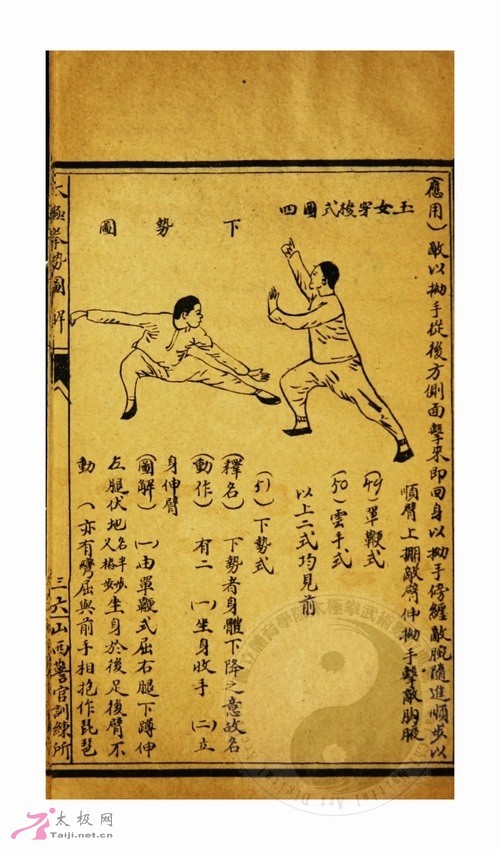 玉女穿梭式圖四
下勢圖
(應用)敵以拗手從後方側面擊來即回身以拗手傍纏敵腕隨進順步以
順臂上掤敵臂伸拗手擊敵胸腋
(49)單鞭式
(50)雲手式
以上二式均見前
(51)下勢式
(釋名)下勢者身體下降之意故名
(動作)有二(一)坐身收手(二)立
身伸臂
(圖解)(一)由單鞭式屈右腿下蹲伸
左腿伏地名半步又椿步坐身於後足後臂不
動(亦有彎屈與前手相抱作琵琶
太極拳勢圖解
三六
山西警官訓練所
太极网
Taiji.net.cn